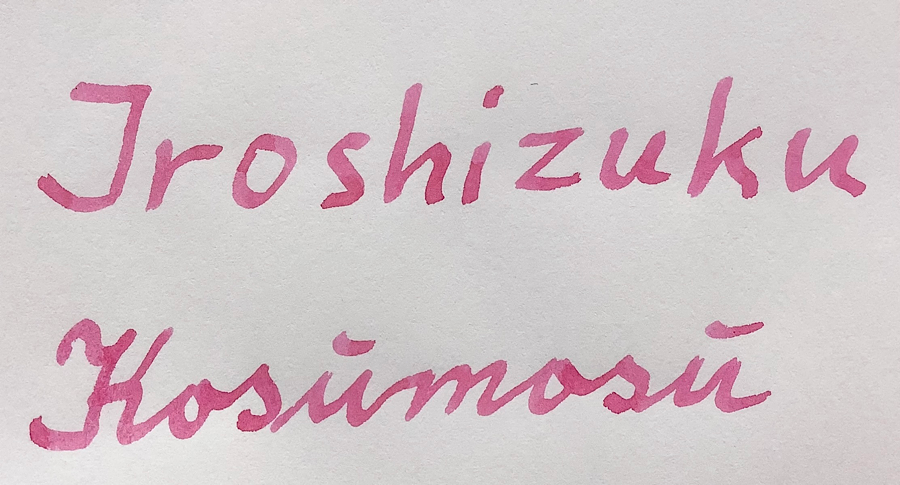 Iroshizuku
Kosūmosū